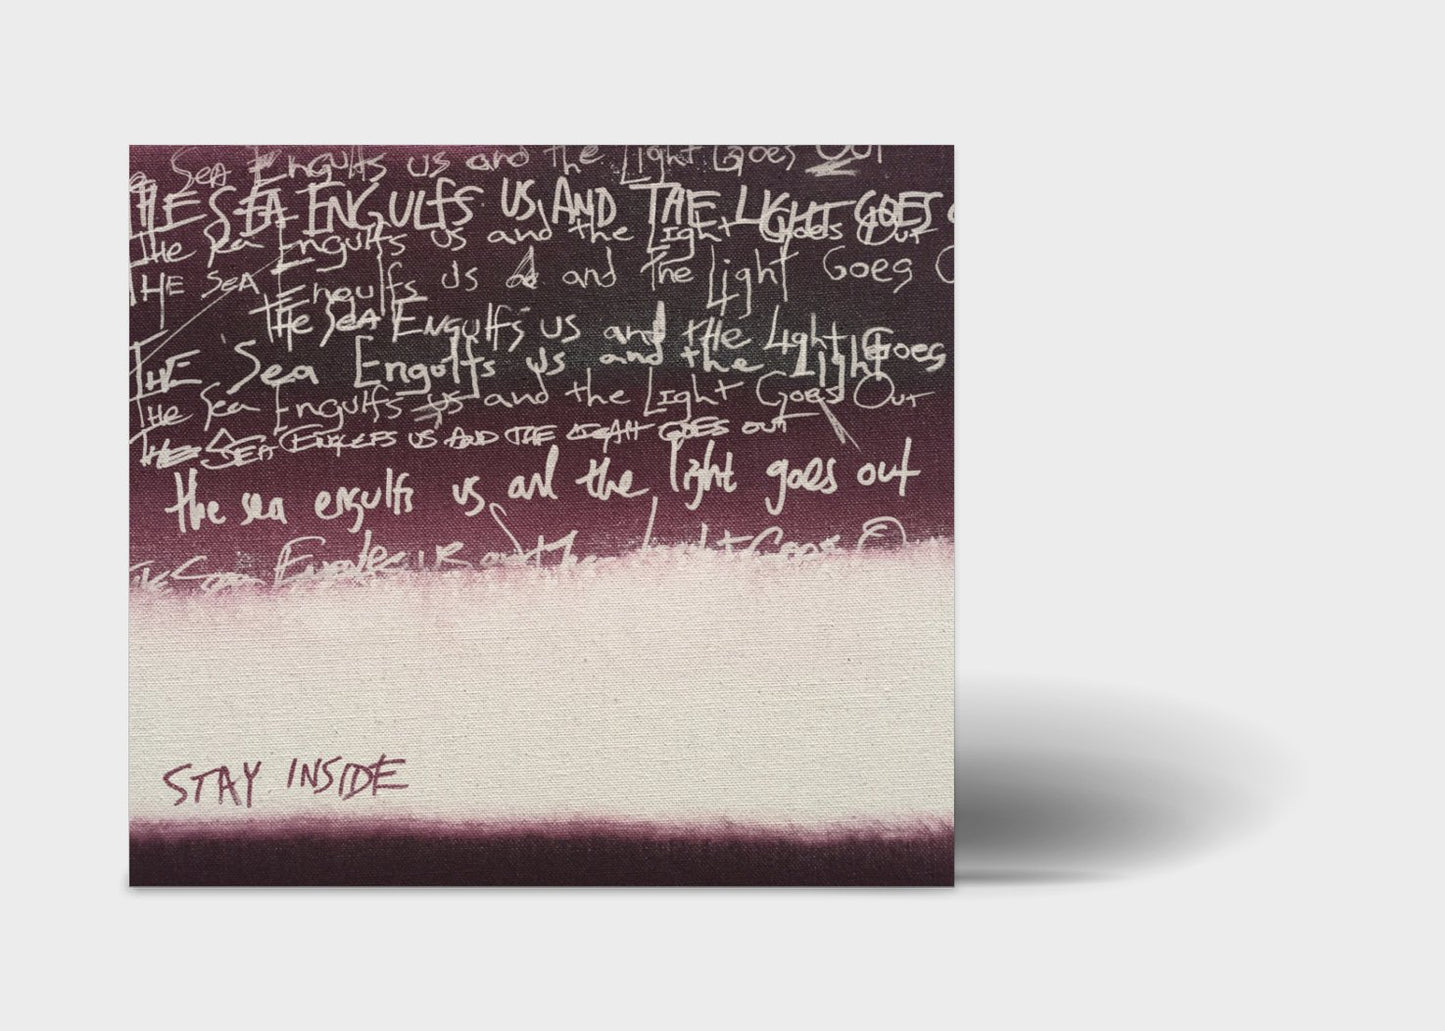 Sea Engulfs us and the Light Goes Out
THE SEA ENGULFS US AND THE LIGHT GOES
The Sea Engulfs us and the Light Goes Out
THE SEA Engulfs us and The Light Goes
THE SEA ENgulfs us and tHe Light Goes
THE Sea Engulfs us and the Light
The Sea Engulfs us and the Light Goes Out
THE SEA ENGULFS US AND THE LIGHT GOES OUT
the sea engulfs us and the light goes out
and the Light Goes
STAY INSIDE